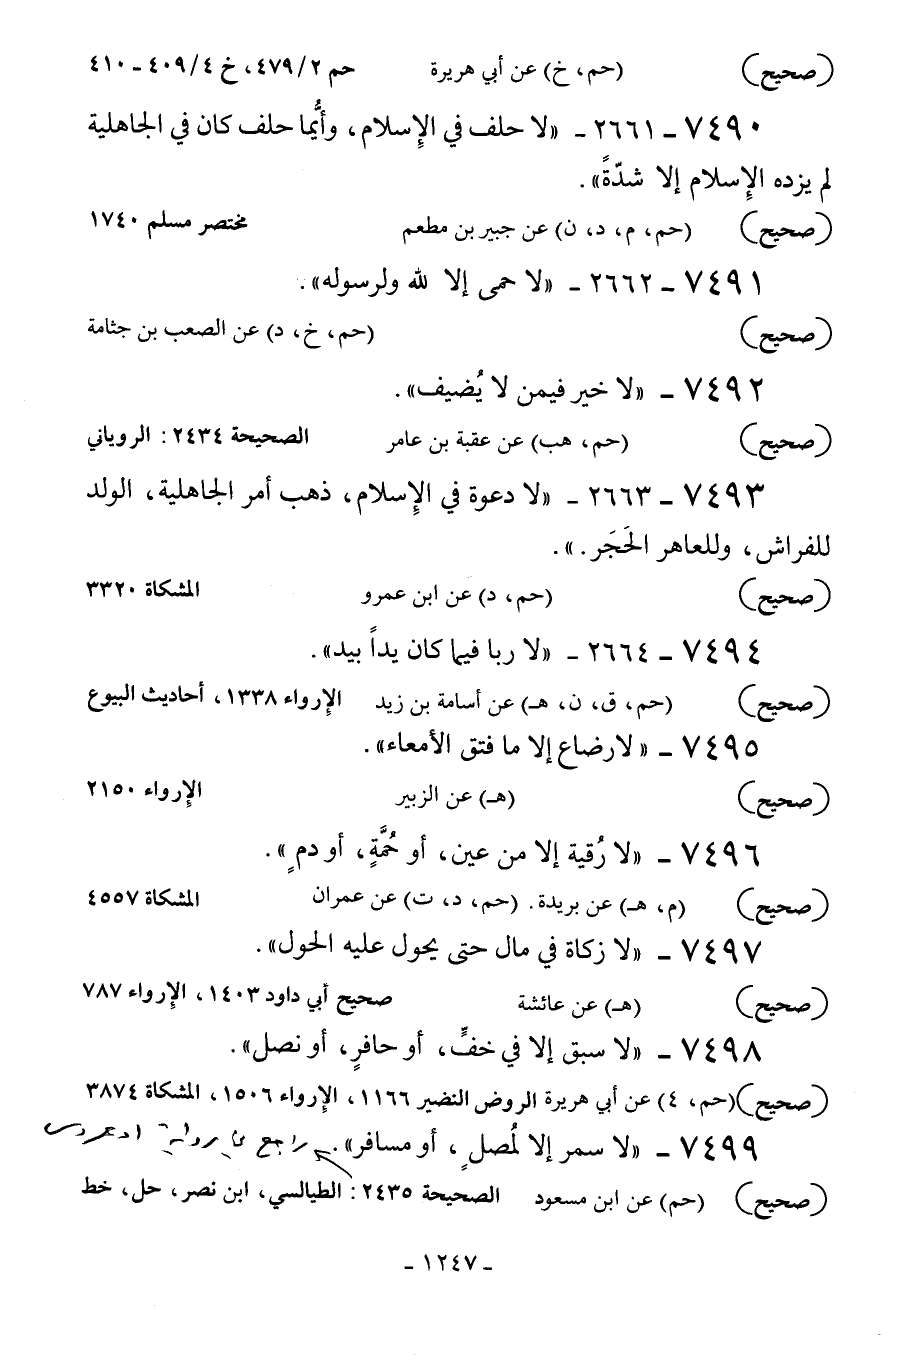 (صحيح) (حم، خ) عن أبي هريرة حم ٤٧٩/٢، خ ٤٠٩/٤ ـ ٤١٠
٧٤٩٠ ـ ٢٦٦١ ـ «لا حلف في الإِسلام، وأيُّما حلف كان في الجاهلية
لم يزده الإِسلام إلا شدّةً».
(صحيح) (حم، م، د، ن) عن جبير بن مطعم مختصر مسلم ١٧٤٠
٧٤٩١ ـ ٢٦٦٢ ـ «لا حمى إلا لله ولرسوله».
(صحيح) (حم، خ، د) عن الصعب بن جثامة
٧٤٩٢ ـ «لا خير فيمن لا يُضيف».
(صحيح) (حم، هب) عن عقبة بن عامر الصحيحة ٢٤٣٤ : الروياني
٧٤٩٣ ـ ٢٦٦٣ ـ «لا دعوة في الإِسلام، ذهب أمر الجاهلية، الولد
للفراش، وللعاهر الحَجَر. ».
(صحيح) (حم، د) عن ابن عمرو المشكاة ٣٣٢٠
٧٤٩٤ ـ ٢٦٦٤ ـ «لا ربا فيما كان يداً بيد».
(صحيح) (حم، ق، ن، هـ) عن أسامة بن زيد الإِرواء ١٣٣٨، أحاديث البيوع
٧٤٩٥ ـ « لارضاع إلا ما فتق الأمعاء».
(صحيح) (هـ) عن الزبير الإِرواء ٢١٥٠
٧٤٩٦ ـ «لا رُقية إلا من عين، أو حُمَّةٍ، أو دمٍ ».
(صحيح) (م، هـ) عن بريدة. (حم، د، ت) عن عمران المشكاة ٤٥٥٧
٧٤٩٧ ـ «لا زكاة في مال حتى يحول عليه الحول».
(صحيح) (هـ) عن عائشة صحيح أبي داود ١٤٠٣، الإِرواء ٧٨٧
٧٤٩٨ ـ «لا سبق إلا في خفٍّ، أو حافرٍ، أو نصل».
(صحيح) (حم، ٤) عن أبي هريرة الروض النضير ١١٦٦، الإِرواء ١٥٠٦، المشكاة ٣٨٧٤
٧٤٩٩ ـ «لا سمر إلا لمُصلٍ، أو مسافر».
(صحيح) (حم) عن ابن مسعود الصحيحة ٢٤٣٥ : الطيالسي، ابن نصر، حل، خط
ـ ١٢٤٧ ـ